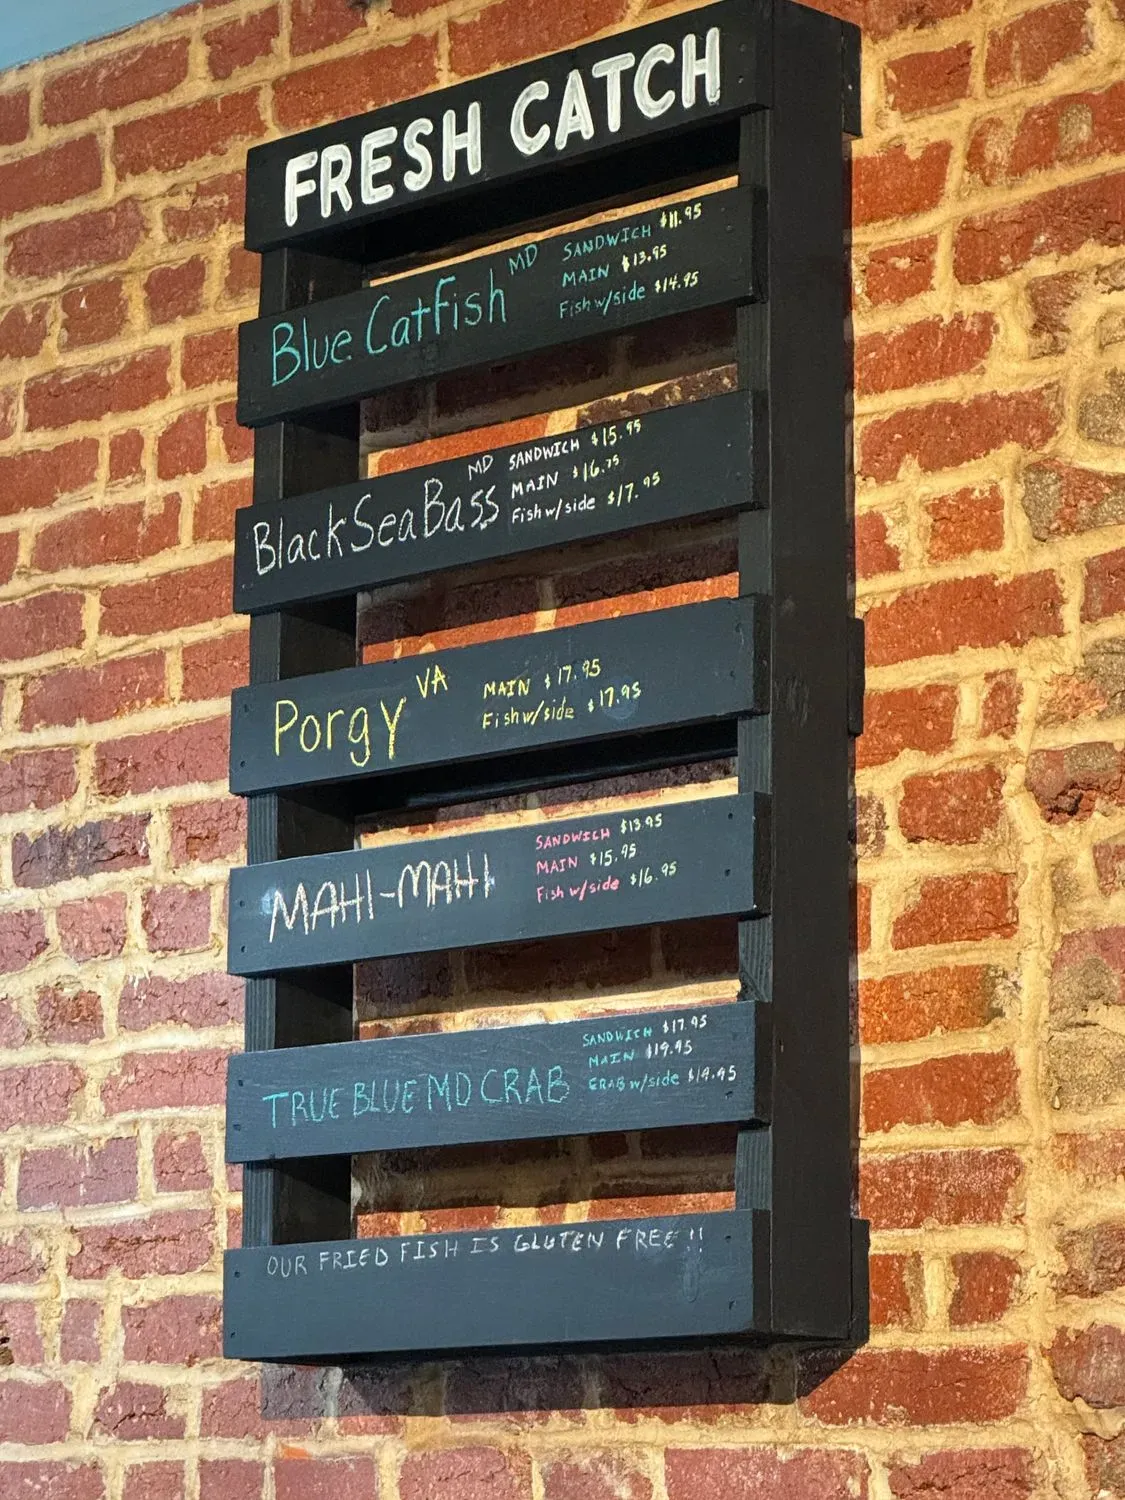 FRESH CATCH
Blue Catfish MD
SANDWICH $11.95
MAIN $13.95
Fish w/side $14.95
Black Sea Bass MD
SANDWICH $15.95
MAIN $16.75
Fish w/side $17.95
Porgy VA
MAIN $17.95
Fish w/side $17.95
MAHI-MAHI
SANDWICH $13.95
MAIN $15.95
Fish w/side $16.95
TRUE BLUE MD CRAB
SANDWICH $17.95
MAIN $19.95
CRAB w/side $19.95
OUR FRIED FISH IS GLUTEN FREE!!